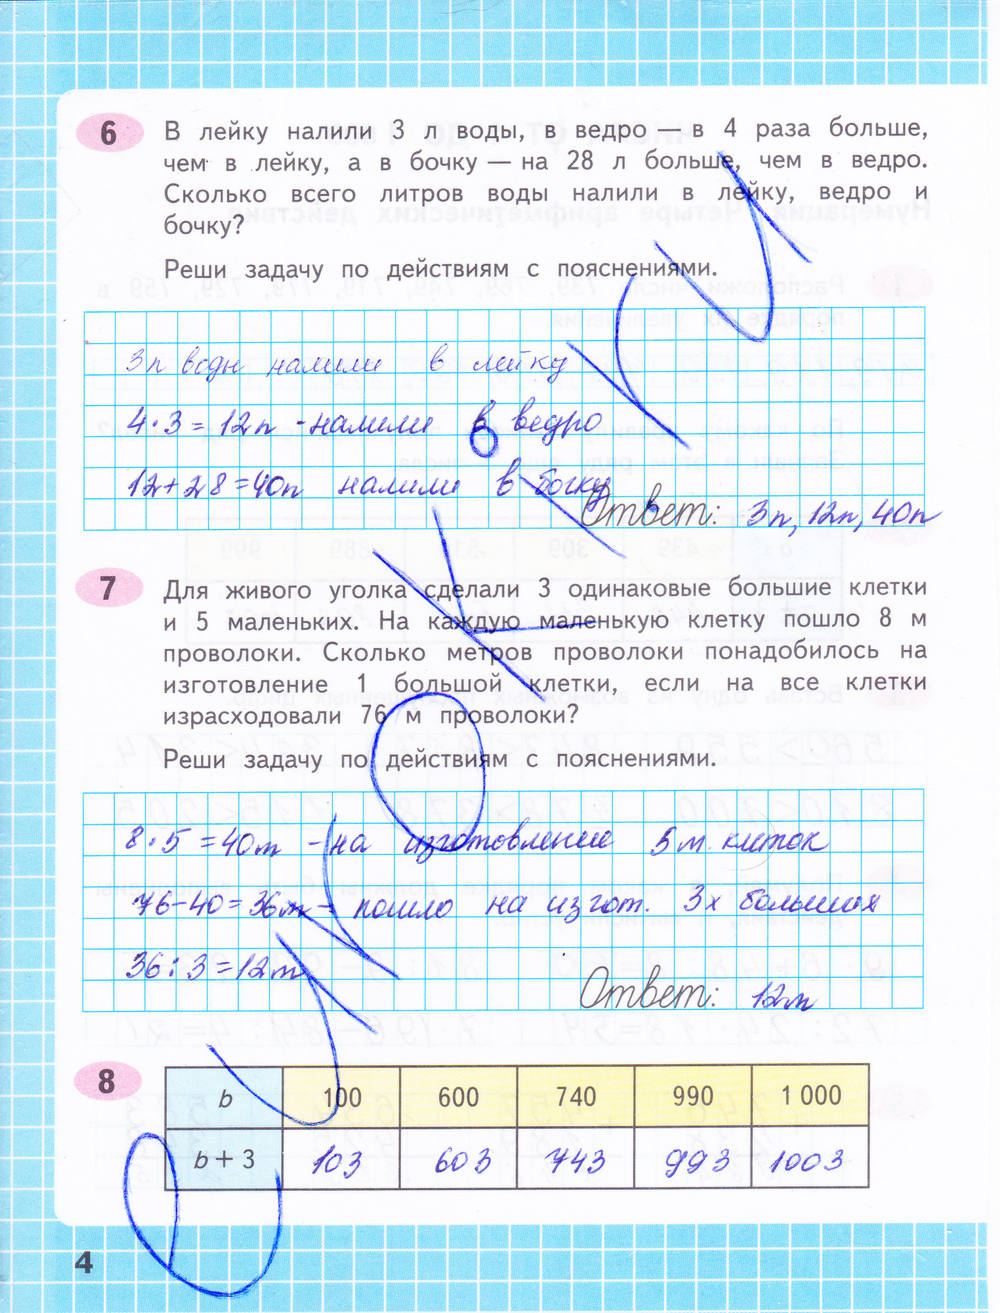 6
В лейку налили 3 л воды, в ведро — в 4 раза больше,
чем в лейку, а в бочку — на 28 л больше, чем в ведро.
Сколько всего литров воды налили в лейку, ведро и
бочку?
Реши задачу по действиям с пояснениями.
3л воды налили в лейку
4·3=12л - налили в ведро
12+28=40л налили в бочку
Ответ: 3л, 12л, 40л
7
Для живого уголка сделали 3 одинаковые большие клетки
и 5 маленьких. На каждую маленькую клетку пошло 8 м
проволоки. Сколько метров проволоки понадобилось на
изготовление 1 большой клетки, если на все клетки
израсходовали 76 м проволоки?
Реши задачу по действиям с пояснениями.
8·5=40м - на изготовление 5 м. клеток
76-40=36м - пошло на изгот. 3х больших
36:3=12м
Ответ: 12м
8
b 100 600 740 990 1 000
b + 3 103 603 743 993 1003
4